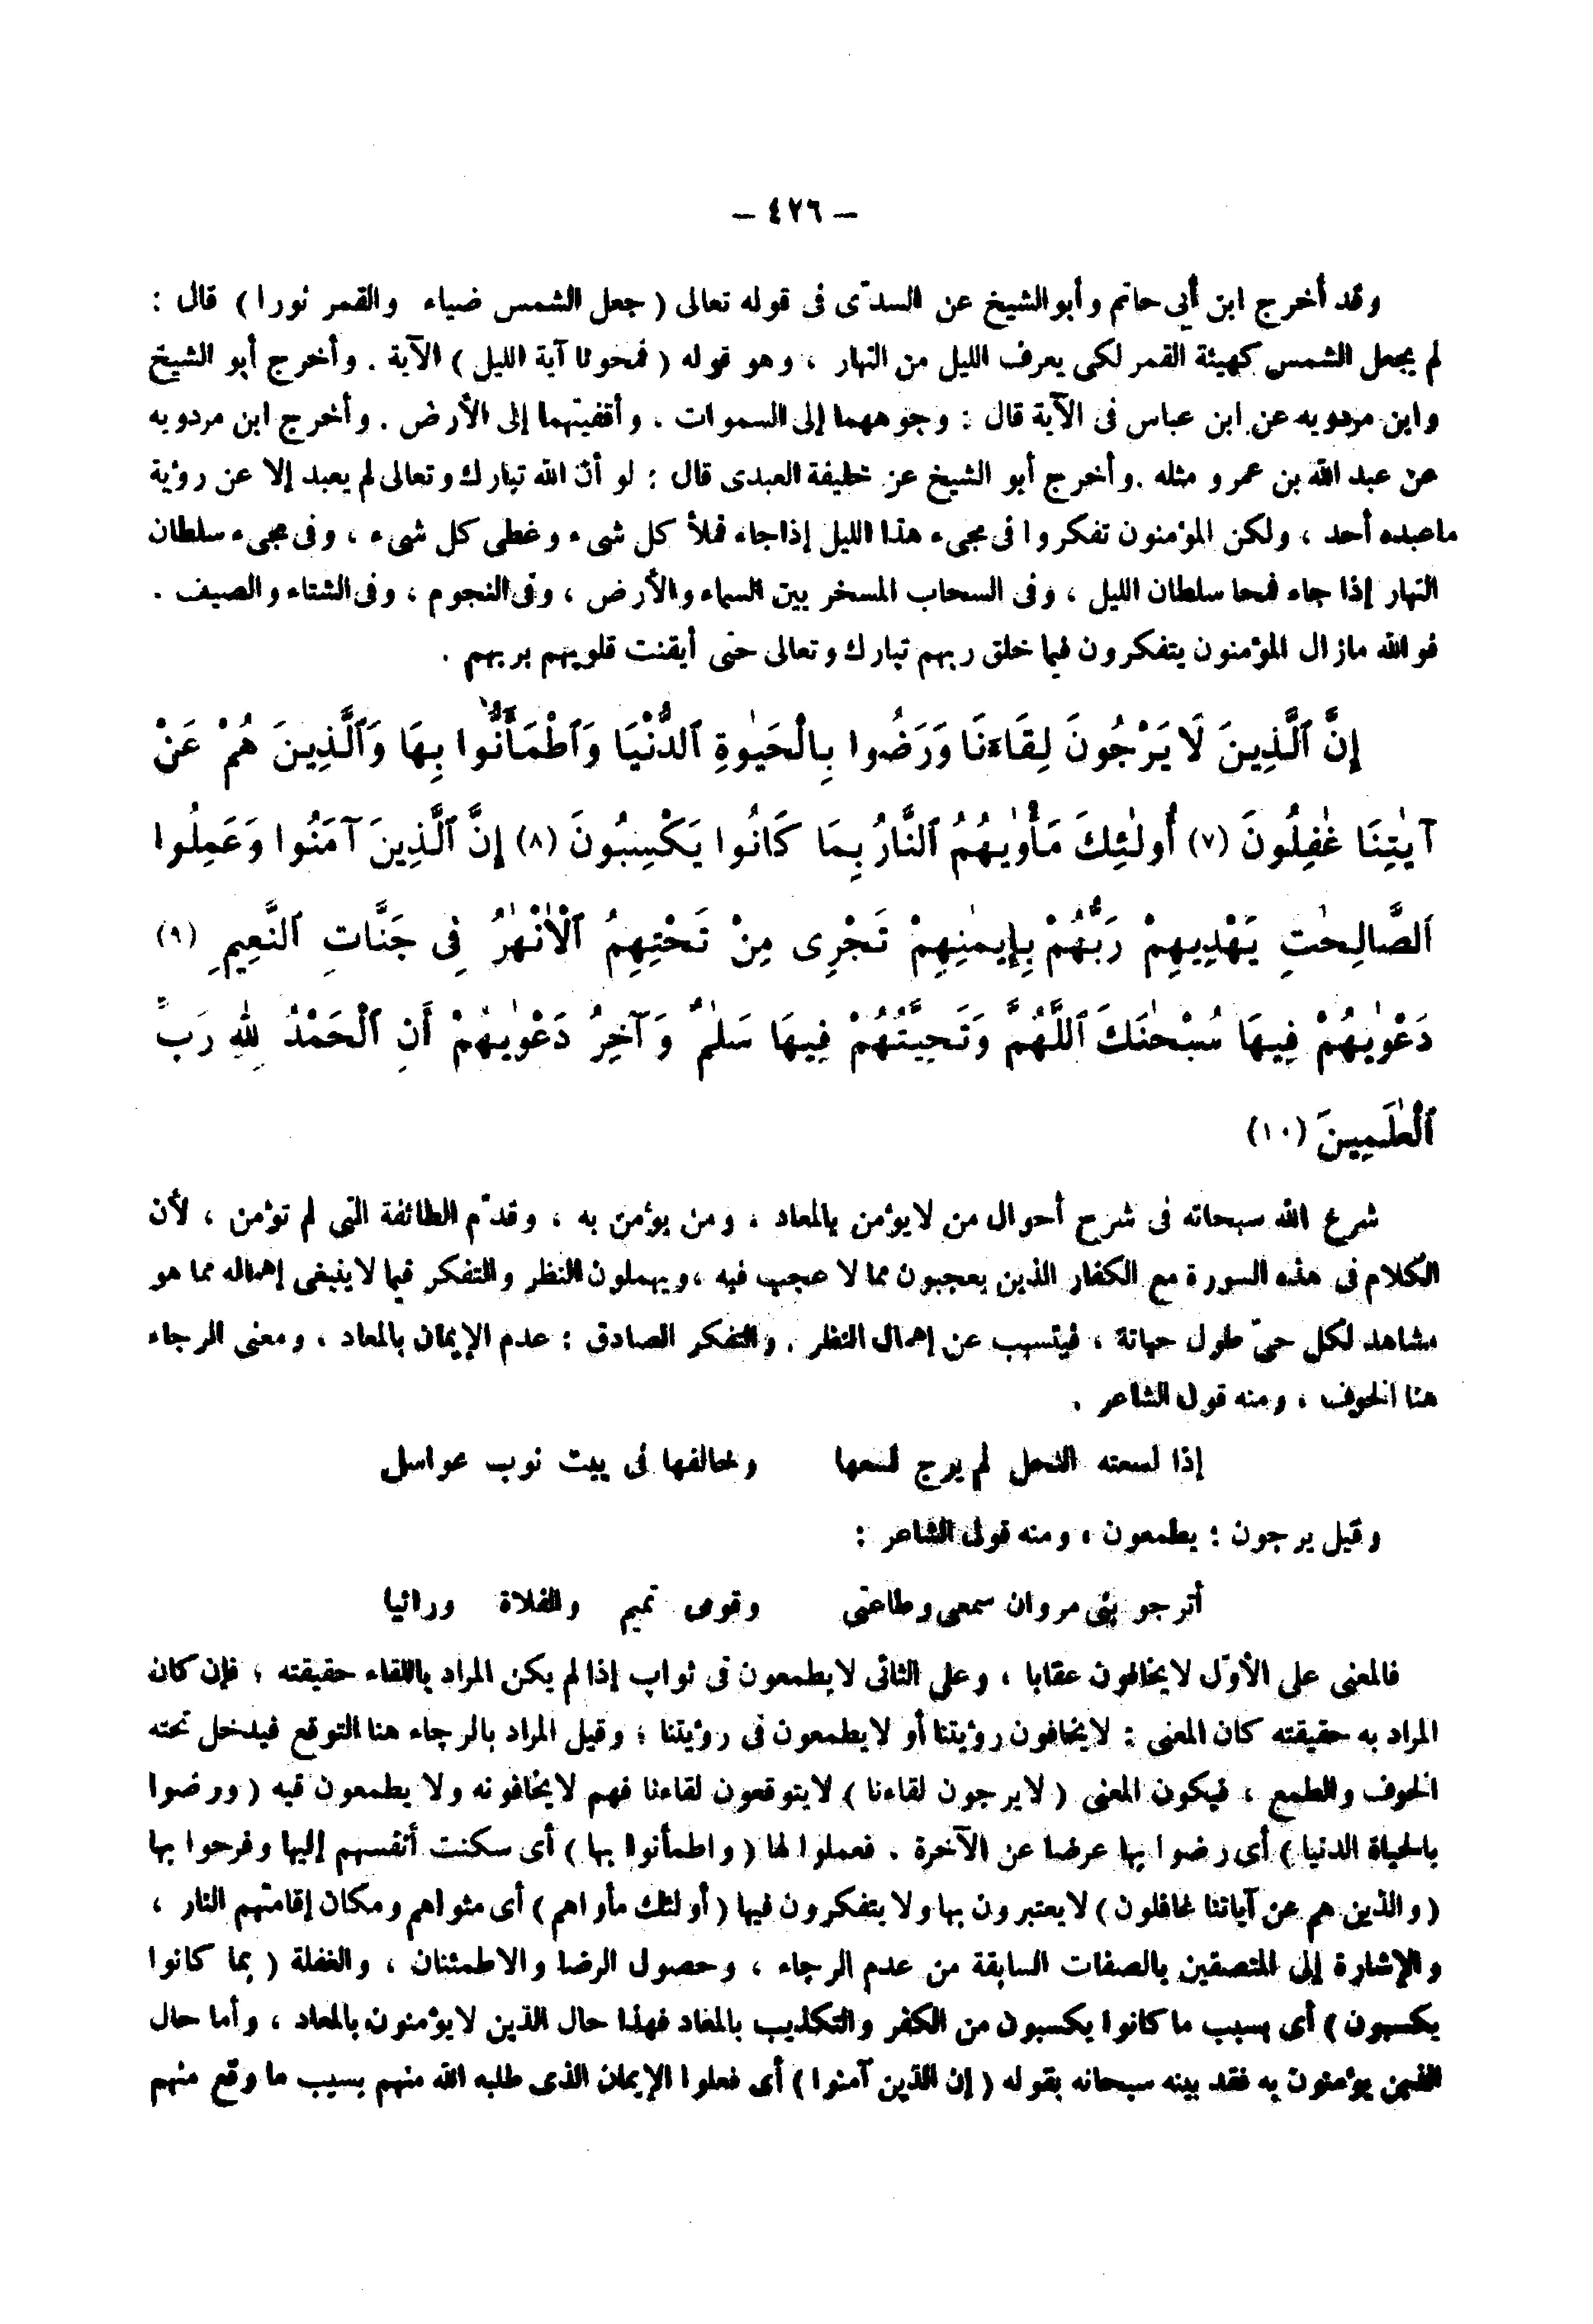 – ٤٢٦ –
وقد أخرج ابن أبى حاتم وأبو الشيخ عن السدّى فى قوله تعالى ( جعل الشمس ضياء والقمر نورا ) قال :
لم يجعل الشمس كهيئة القمر لكى يعرف الليل من النهار ، وهو قوله ( فمحونا آية الليل ) الآية . وأخرج أبو الشيخ
وابن مردويه عن ابن عباس فى الآية قال : وجوههما إلى السموات ، وأقفيتهما إلى الأرض . وأخرج ابن مردويه
عن عبد الله بن عمرو مثله . وأخرج أبو الشيخ عن خليفة العبدى قال : لو أن الله تبارك وتعالى لم يعبد إلا عن رؤية
ماعبده أحد ، ولكن المؤمنون تفكروا فى مجىء هذا الليل إذا جاء فملأ كل شىء وغطى كل شىء ، وفى مجىء سلطان
النهار إذا جاء فمحا سلطان الليل ، وفى السحاب المسخر بين السماء والأرض ، وفى النجوم ، وفى الشتاء والصيف .
فوالله مازال المؤمنون يتفكرون فيما خلق ربهم تبارك وتعالى حتى أيقنت قلوبهم بربهم .
إِنَّ ٱلَّذِينَ لَا يَرْجُونَ لِقَاءَنَا وَرَضُوا بِالْحَيٰوةِ ٱلدُّنْيَا وَٱطْمَأَنُّوا بِهَا وَٱلَّذِينَ هُمْ عَنْ
آيٰتِنَا غٰفِلُونَ (٧) أُولٰئِكَ مَأْوٰيهُمُ ٱلنَّارُ بِمَا كَانُوا يَكْسِبُونَ (٨) إِنَّ ٱلَّذِينَ آمَنُوا وَعَمِلُوا
ٱلصَّالِحٰتِ يَهْدِيهِمْ رَبُّهُمْ بِإِيمٰنِهِمْ تَجْرِى مِنْ تَحْتِهِمُ ٱلْأَنْهٰرُ فِى جَنَّاتِ ٱلنَّعِيمِ (٩)
دَعْوٰيهُمْ فِيهَا سُبْحٰنَكَ ٱللَّهُمَّ وَتَحِيَّتُهُمْ فِيهَا سَلٰمٌ وَآخِرُ دَعْوٰيهُمْ أَنِ ٱلْحَمْدُ لِلهِ رَبِّ
ٱلْعٰلَمِينَ (١٠)
شرع الله سبحانه فى شرح أحوال من لايؤمن بالمعاد ، ومن يؤمن به ، وقدّم الطائفة التى لم تؤمن ، لأن
الكلام فى هذه السورة مع الكفار الذين يعجبون مما لا عجب فيه ، ويهملون النظر والتفكر فيما لاينبغى إهماله مما هو
مشاهد لكل حىّ طول حياته ، فيتسبب عن إهمال النظر . والتفكر الصادق : عدم الإيمان بالمعاد ، ومعنى الرجاء
هنا الخوف ، ومنه قول الشاعر .
إذا لسعته النحل لم يرج لسعها وخالفها فى بيت نوب عواسل
وقيل يرجون : يطمعون ، ومنه قول الشاعر :
أترجو بنى مروان سمعى وطاعتى وقومى تميم والفلاة ورائيا
فالمعنى على الأوّل لايخافون عقابا ، وعلى الثانى لايطمعون فى ثواب إذا لم يكن المراد باللقاء حقيقته ؛ فإن كان
المراد به حقيقته كان المعنى : لايخافون رؤيتنا أو لايطمعون فى رؤيتنا ؛ وقيل المراد بالرجاء هنا التوقع فيدخل تحته
الخوف والطمع ، فيكون المعنى ( لايرجون لقاءنا ) لايتوقعون لقاءنا فهم لايخافونه ولا يطمعون فيه ( ورضوا
بالحياة الدنيا ) أى رضوا بها عرضا عن الآخرة . فعملوا لها ( واطمأنوا بها ) أى سكنت أنفسهم إليها وفرحوا بها
( والذين هم عن آياتنا غافلون ) لايعتبرون بها ولا يتفكرون فيها ( أولئك مأواهم ) أى مثواهم ومكان إقامتهم النار ،
والإشارة إلى المتصفين بالصفات السابقة من عدم الرجاء ، وحصول الرضا والاطمئنان ، والغفلة ( بما كانوا
يكسبون ) أى بسبب ما كانوا يكسبون من الكفر والتكذيب بالمعاد فهذا حال الذين لايؤمنون بالمعاد ، وأما حال
الذين يؤمنون به فقد بينه سبحانه بقوله ( إن الذين آمنوا ) أى فعلوا الإيمان الذى طلبه الله منهم بسبب ما وقع منهم